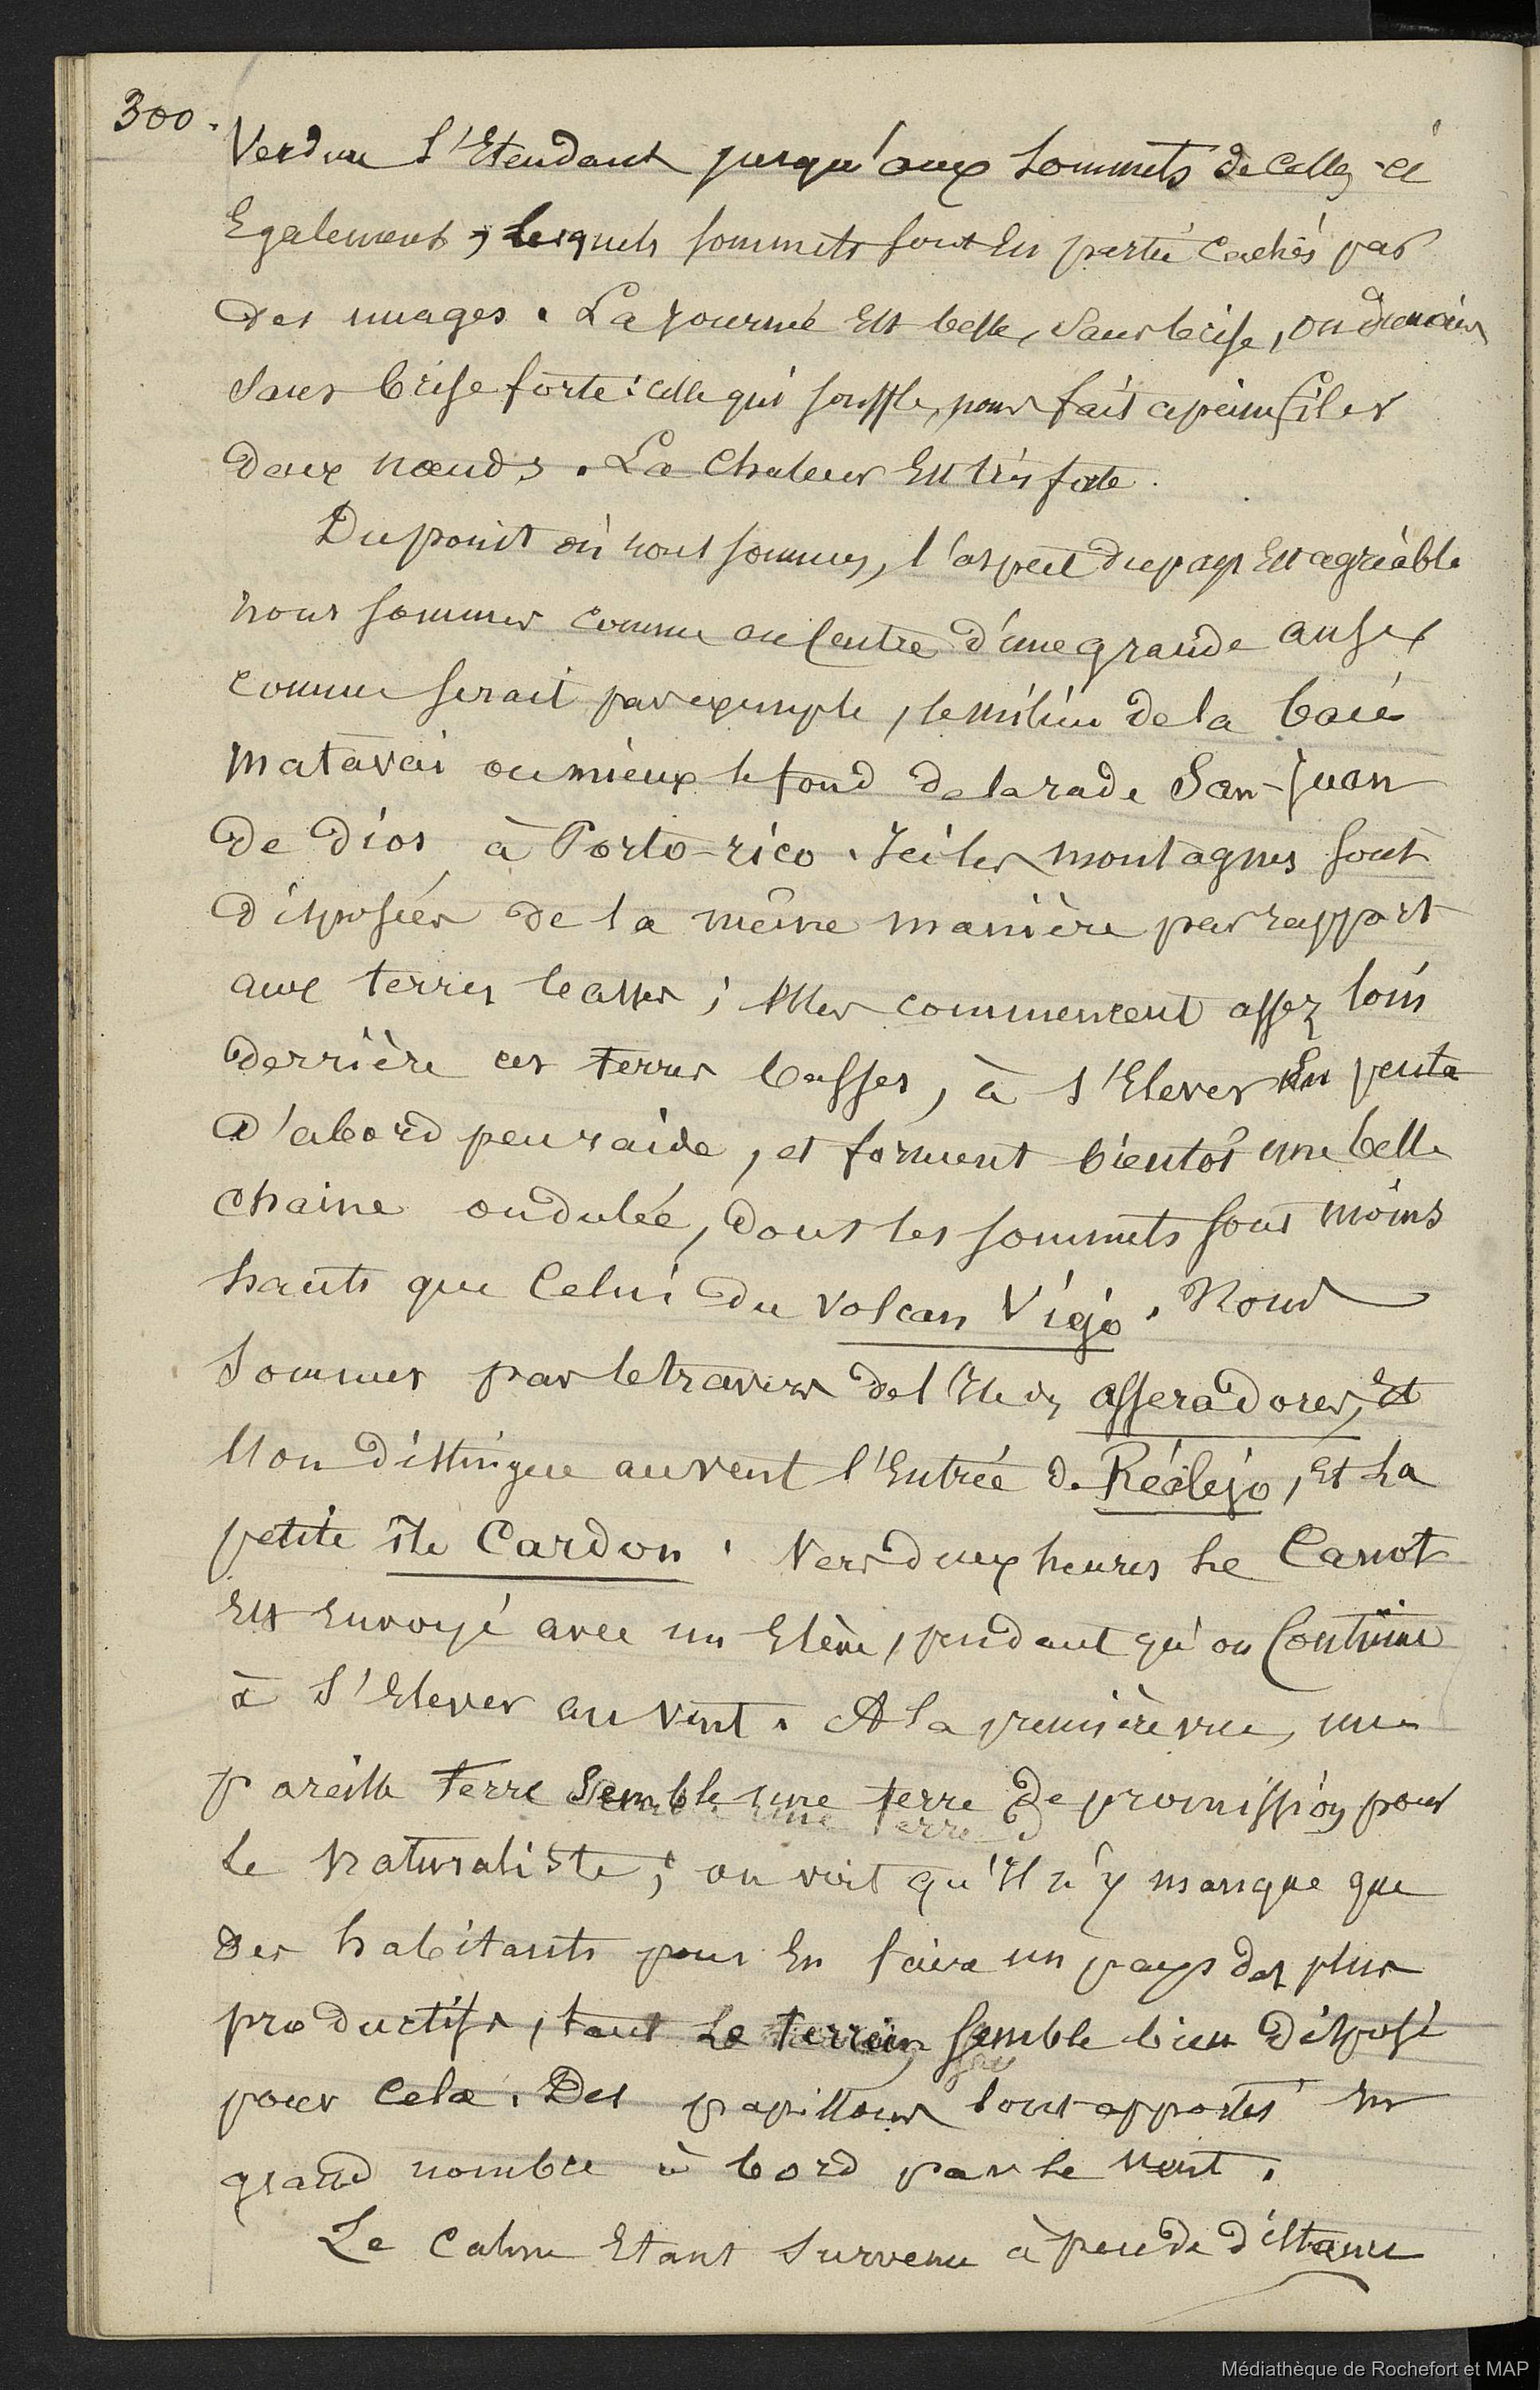 300.
Verdure s'Etendant jusqu'aux sommets de celles-ci
Egalement, lesquels sommets sont En partie cachés par
des nuages. La journée Est belle, sans brise, ou du moins
sans brise forte: celle qui souffle, nous fait apeine filer
deux nœuds. La Chaleur Est très forte.
Du point où nous sommes, l'aspect du pays Est agréable
nous sommes comme au Centre d'une grande anse,
comme serait par exemple, le milieu de la baie
Matavai ou mieux le fond de la rade San-Juan
de Dios à Porto-rico. Ici les montagnes sont
disposées de la même manière par rapport
aux terres basses; Elles commencent assez loin
derrière ces terres basses, à s'Elever En pente
d'abord peu raide, et forment bientôt une belle
chaine ondulée, dont les sommets sont moins
hauts que Celui du volcan Viejo. Nous
sommes par le travers de l'Ile asseradores, Et
l'on distingue au vent l'Entrée de Réalejo, Et la
petite île Cardon. Vers deux heures le Canot
Est Envoyé avec un Elève, pendant qu'on Continue
à s'Elever au vent. A la première vue, une
pareille terre semble une terre de promission pour
le naturaliste; on voit qu'il n'y manque que
des habitants pour En faire un pays des plus
productifs, tant le terrein semble bien disposé
pour cela. Des papillons sont apportés En
grand nombre à bord par le vent.
Le Calme Etant survenu à peu de distance
Médiathèque de Rochefort et MAP